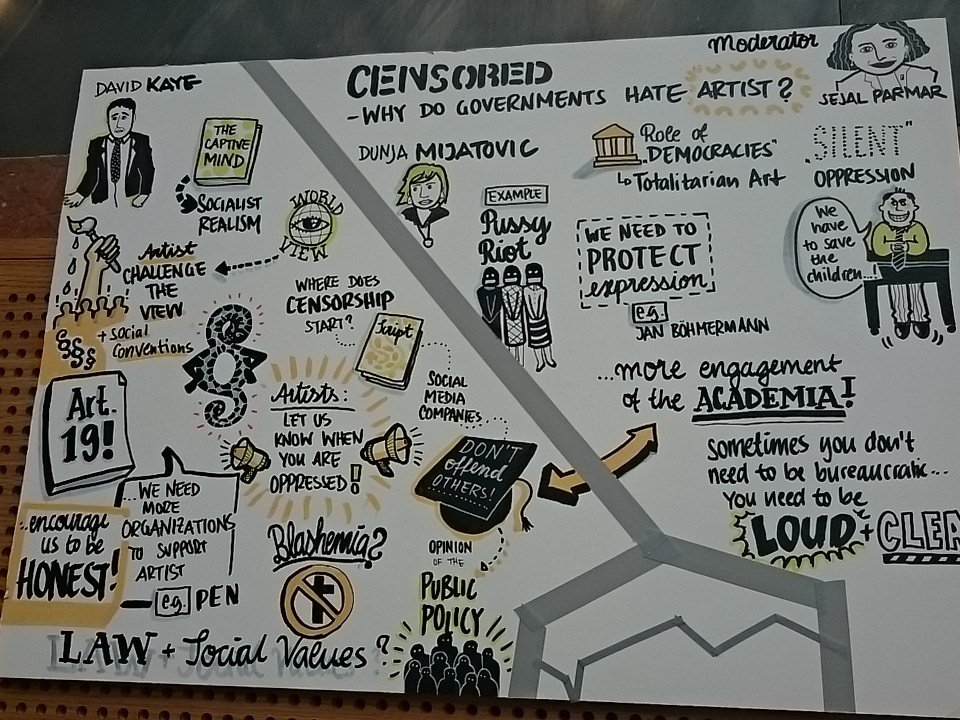 CENSORED
-WHY DO GOVERNMENTS HATE ARTIST?
Moderator
SEJAL PARMAR
DAVID KAYE
THE
CAPTIVE
MIND
SOCIALIST
REALISM
WORLD
VIEW
Artist
CHALLENGE
THE
VIEW
+ social
conventions
§§§
WHERE DOES
CENSORSHIP
START?
Script
SOCIAL
MEDIA
COMPANIES...
Art.
19!
Artists:
LET US
KNOW WHEN
YOU ARE
OPPRESSED!
DON'T
offend
OTHERS!
...encourage
us to be
HONEST!
...WE NEED
MORE
ORGANIZATIONS
TO SUPPORT
ARTIST
e.g. PEN
Blashemia?
OPINION
OF THE
PUBLIC
POLICY
LAW + Social Values?
DUNJA MIJATOVIC
EXAMPLE
Pussy
Riot
Role of
„DEMOCRACIES"
↳ Totalitarian Art
WE NEED TO
PROTECT
expression
e.g.
JAN BÖHMERMANN
„SILENT"
OPPRESSION
We
have
to save
the
children...
...more engagement
of the ACADEMIA!
sometimes you don't
need to be bureaucratic...
You need to be
LOUD + CLEA